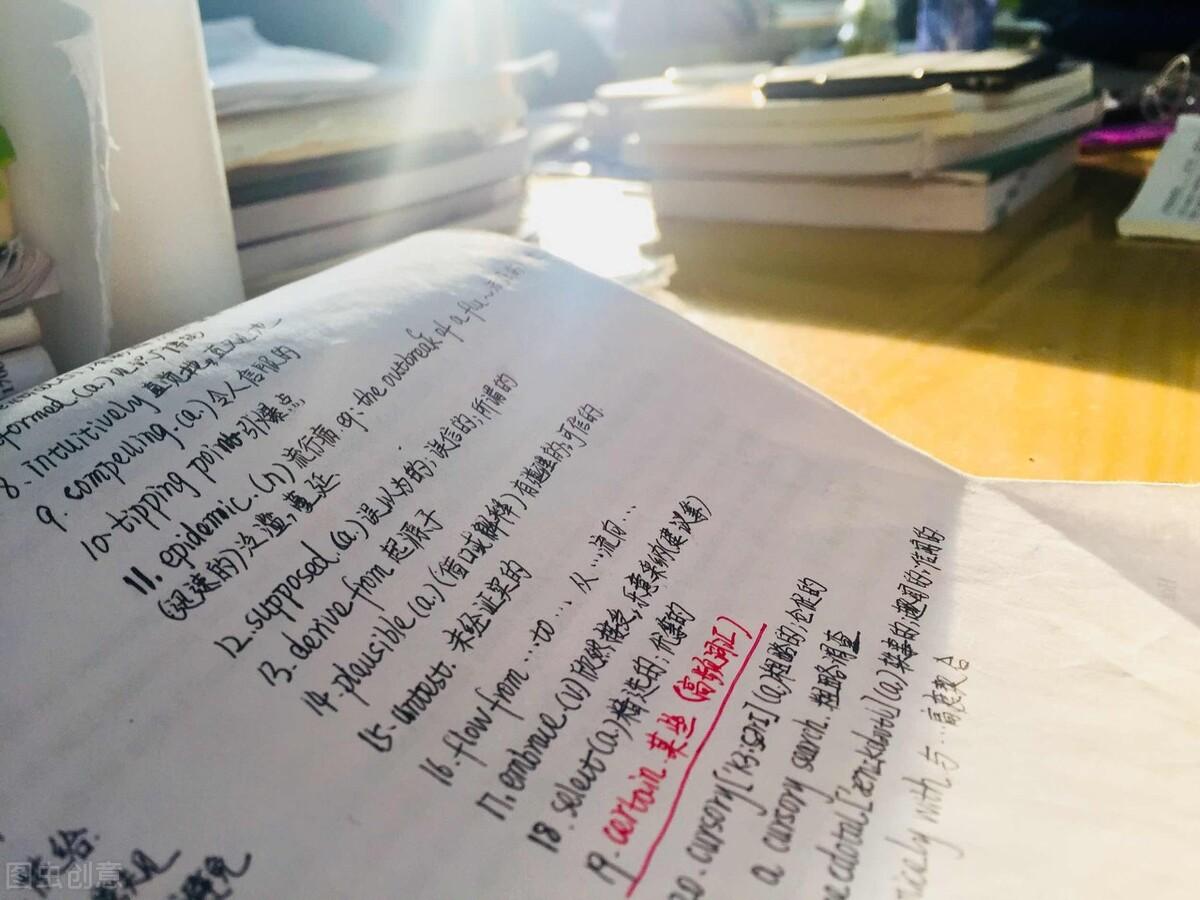 8. intuitively 直觉地，直观地
9. compelling. (a.) 令人信服的
10. tipping point 引爆点
11. epidemic. (n) 流行病. eg: the outbreak of a flu
(迅速的) 泛滥；蔓延
12. supposed. (a.) 误以为的；误信的；所谓的
13. derive from 起源于
14. plausible (a.) (借口或解释) 有道理的；可信的
15. untest. 未经证实的
16. flow from ... to ... 从 ... 流向 ...
17. embrace. (v) 欣然接受，乐意采纳 (建议等)
18. select (a.) 精选的；优等的
19. certain. 某些 (高频词汇)
20. cursory ['kɜ:sərɪ] (a) 粗略的；仓促的
a cursory search. 粗略调查
necdotal (a) 轶事的；趣闻的；传闻的
with 与 ... 高度契合
避免
图虫创意